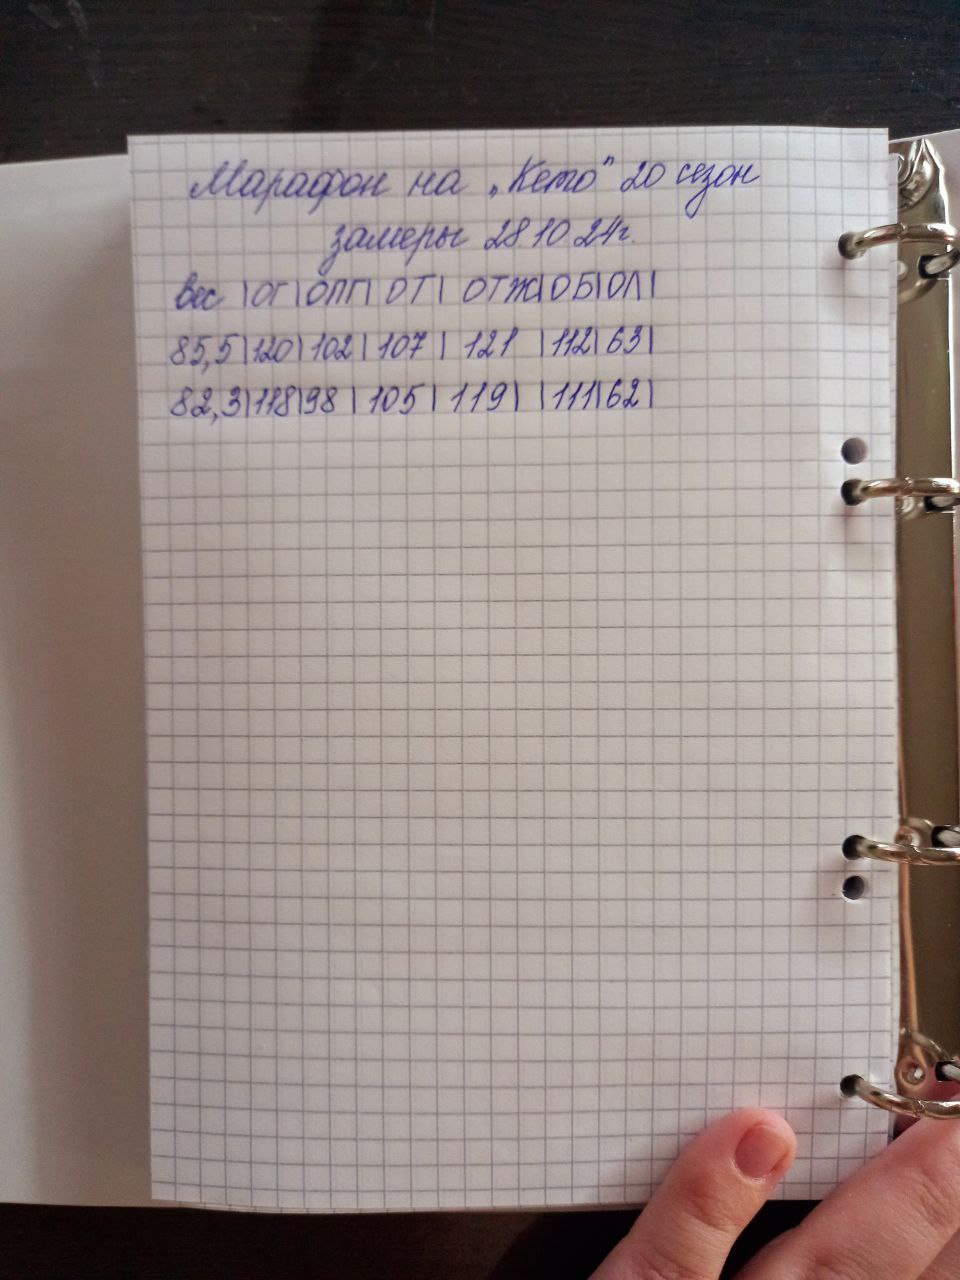 Марафон на „Кето" 20 сезон
замеры 28 10 24г.
Вес |ОГ|ОПГ| ОТ| ОТЖ|ОБ|ОЛ|
85,5|120|102|107| 121 |112|63|
82,3|118|98|105|119| |111|62|